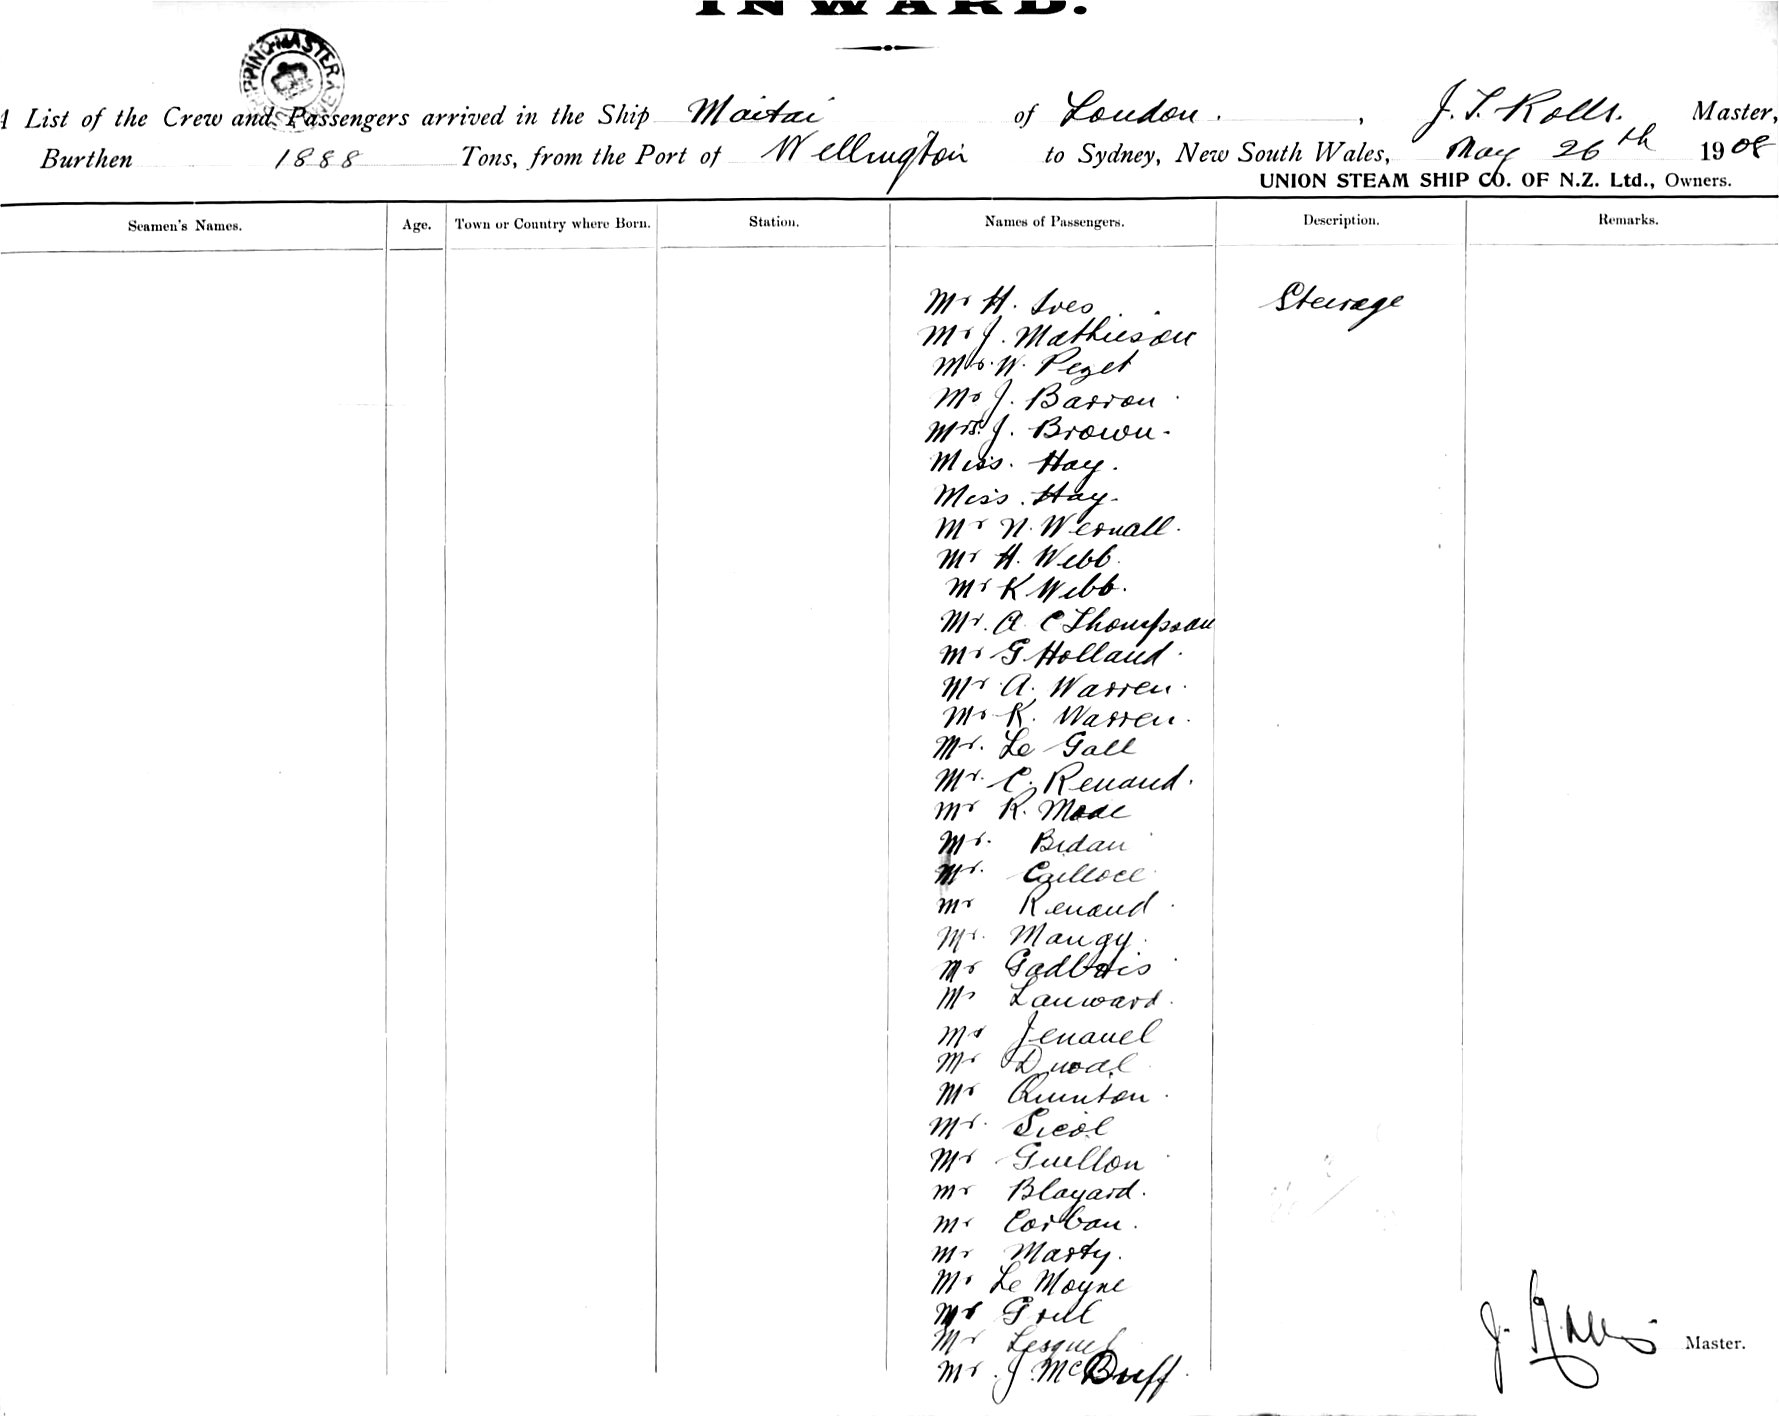 INWARD.
SHIPPING MASTER
A List of the Crew and Passengers arrived in the Ship Maitai of London, J. S. Rolls. Master,
Burthen 1888 Tons, from the Port of Wellington to Sydney, New South Wales, May 26th 1908
UNION STEAM SHIP CO. OF N.Z. Ltd., Owners.
Seamen's Names. Age. Town or Country where Born. Station. Names of Passengers. Description. Remarks.
Mr H. Ives Steerage
Mr J. Mathieson
Mr W. Pezet
Mr J. Barron
Mrs. J. Brown.
Miss. Hay.
Miss. Hay.
Mr N. Wernall.
Mr H. Webb.
Mr K Webb.
Mr. A. C Thompson
Mr G Holland
Mr A. Warren.
Mr K. Warren.
Mr. Le Gall
Mr. C. Renaud.
Mr R.
Mr. Bidan
Mr.
Mr Renaud
Mr. Maugy.
Mr Gadbois
Mr Lanward.
Mr Jenanel
Mr Duval
Mr Quinton.
Mr. Sicol
Mr Guellon
Mr Blayard.
Mr Corban.
Mr Marty.
Mr Le Moyne
Mr Grill
Mr Lesquel
Mr. J. McDuff.
J. Rolls Master.